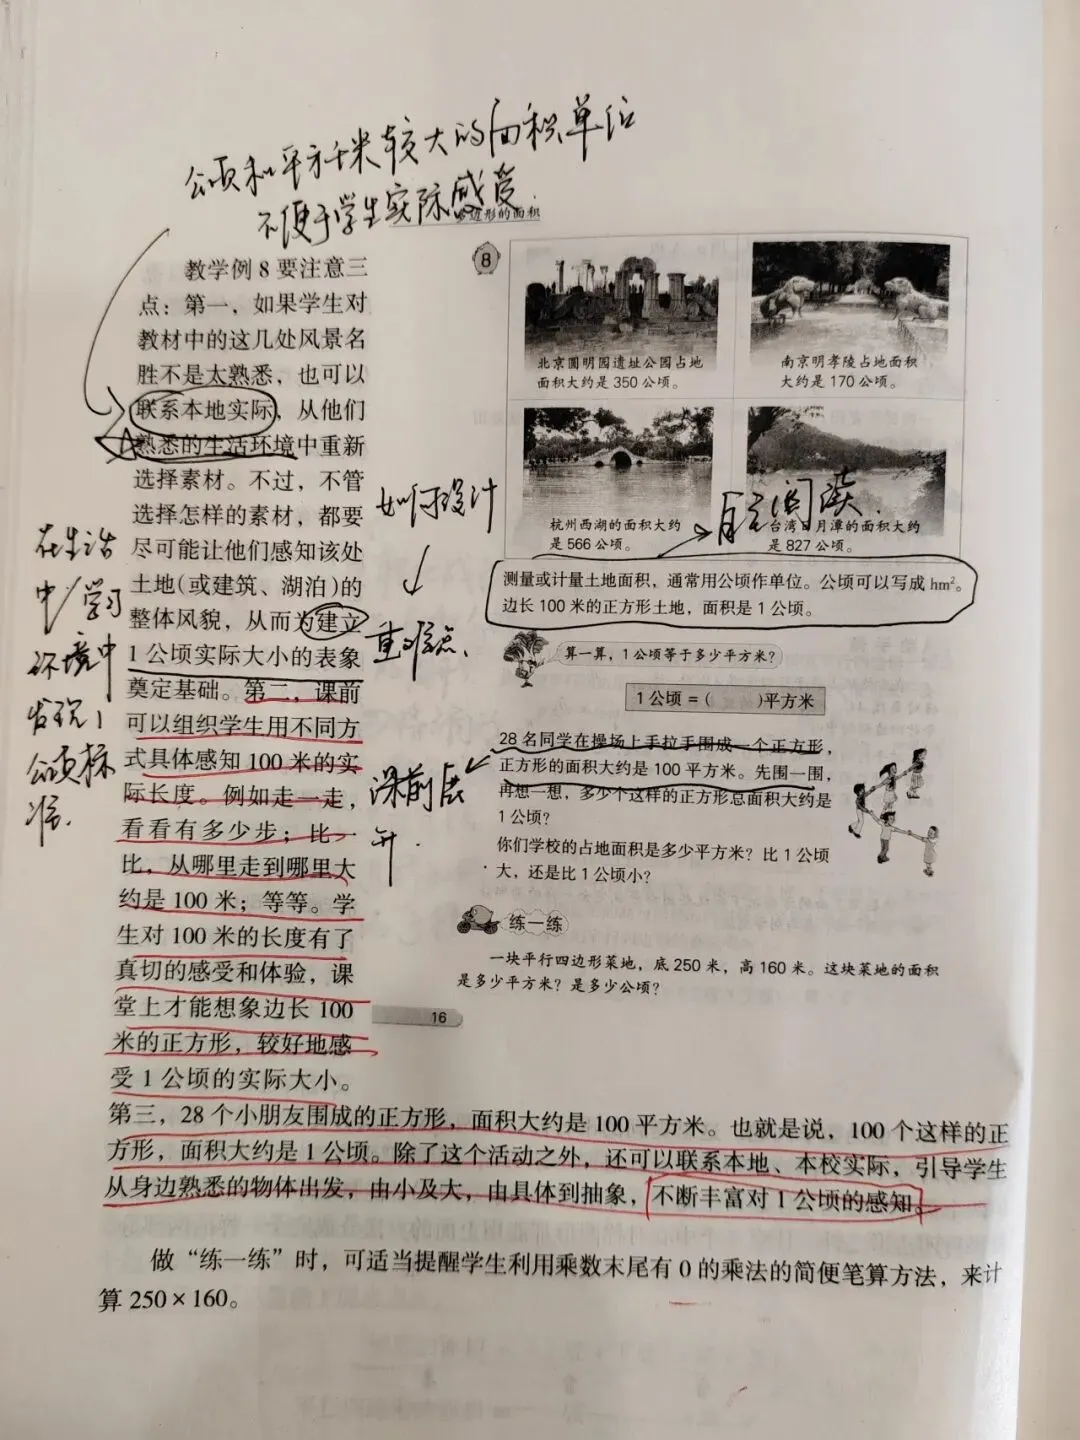 公顷和平方千米较大的面积单位
不便于学生实际感受.
边形的面积
教学例 8 要注意三
点：第一，如果学生对
教材中的这几处风景名
胜不是太熟悉，也可以
联系本地实际，从他们
熟悉的生活环境中重新
选择素材。不过，不管
选择怎样的素材，都要
尽可能让他们感知该处
土地(或建筑、湖泊)的
整体风貌，从而为建立
1 公顷实际大小的表象
奠定基础。第二，课前
可以组织学生用不同方
式具体感知 100 米的实
际长度。例如走一走，
看看有多少步；比一
比，从哪里走到哪里大
约是 100 米；等等。学
生对 100 米的长度有了
真切的感受和体验，课
堂上才能想象边长 100
米的正方形，较好地感
受 1 公顷的实际大小。
第三，28 个小朋友围成的正方形，面积大约是 100 平方米。也就是说，100 个这样的正
方形，面积大约是 1 公顷。除了这个活动之外，还可以联系本地、本校实际，引导学生
从身边熟悉的物体出发，由小及大，由具体到抽象，不断丰富对 1 公顷的感知。
做“练一练”时，可适当提醒学生利用乘数末尾有 0 的乘法的简便笔算方法，来计
算 250×160。
在生活
中/学习
环境中
发现1
公顷标
准.
如何设计
重难点、
课前展
开.
8
北京圆明园遗址公园占地
面积大约是 350 公顷。
南京明孝陵占地面积
大约是 170 公顷。
杭州西湖的面积大约
是 566 公顷。
台湾日月潭的面积大约
是 827 公顷。
自主阅读.
测量或计量土地面积，通常用公顷作单位。公顷可以写成 hm²。
边长 100 米的正方形土地，面积是 1 公顷。
算一算，1 公顷等于多少平方米？
1 公顷 = (　　)平方米
28 名同学在操场上手拉手围成一个正方形，
正方形的面积大约是 100 平方米。先围一围，
再想一想，多少个这样的正方形总面积大约是
1 公顷？
你们学校的占地面积是多少平方米？比 1 公顷
大，还是比 1 公顷小？
练一练
一块平行四边形菜地，底 250 米，高 160 米。这块菜地的面积
是多少平方米？是多少公顷？
16